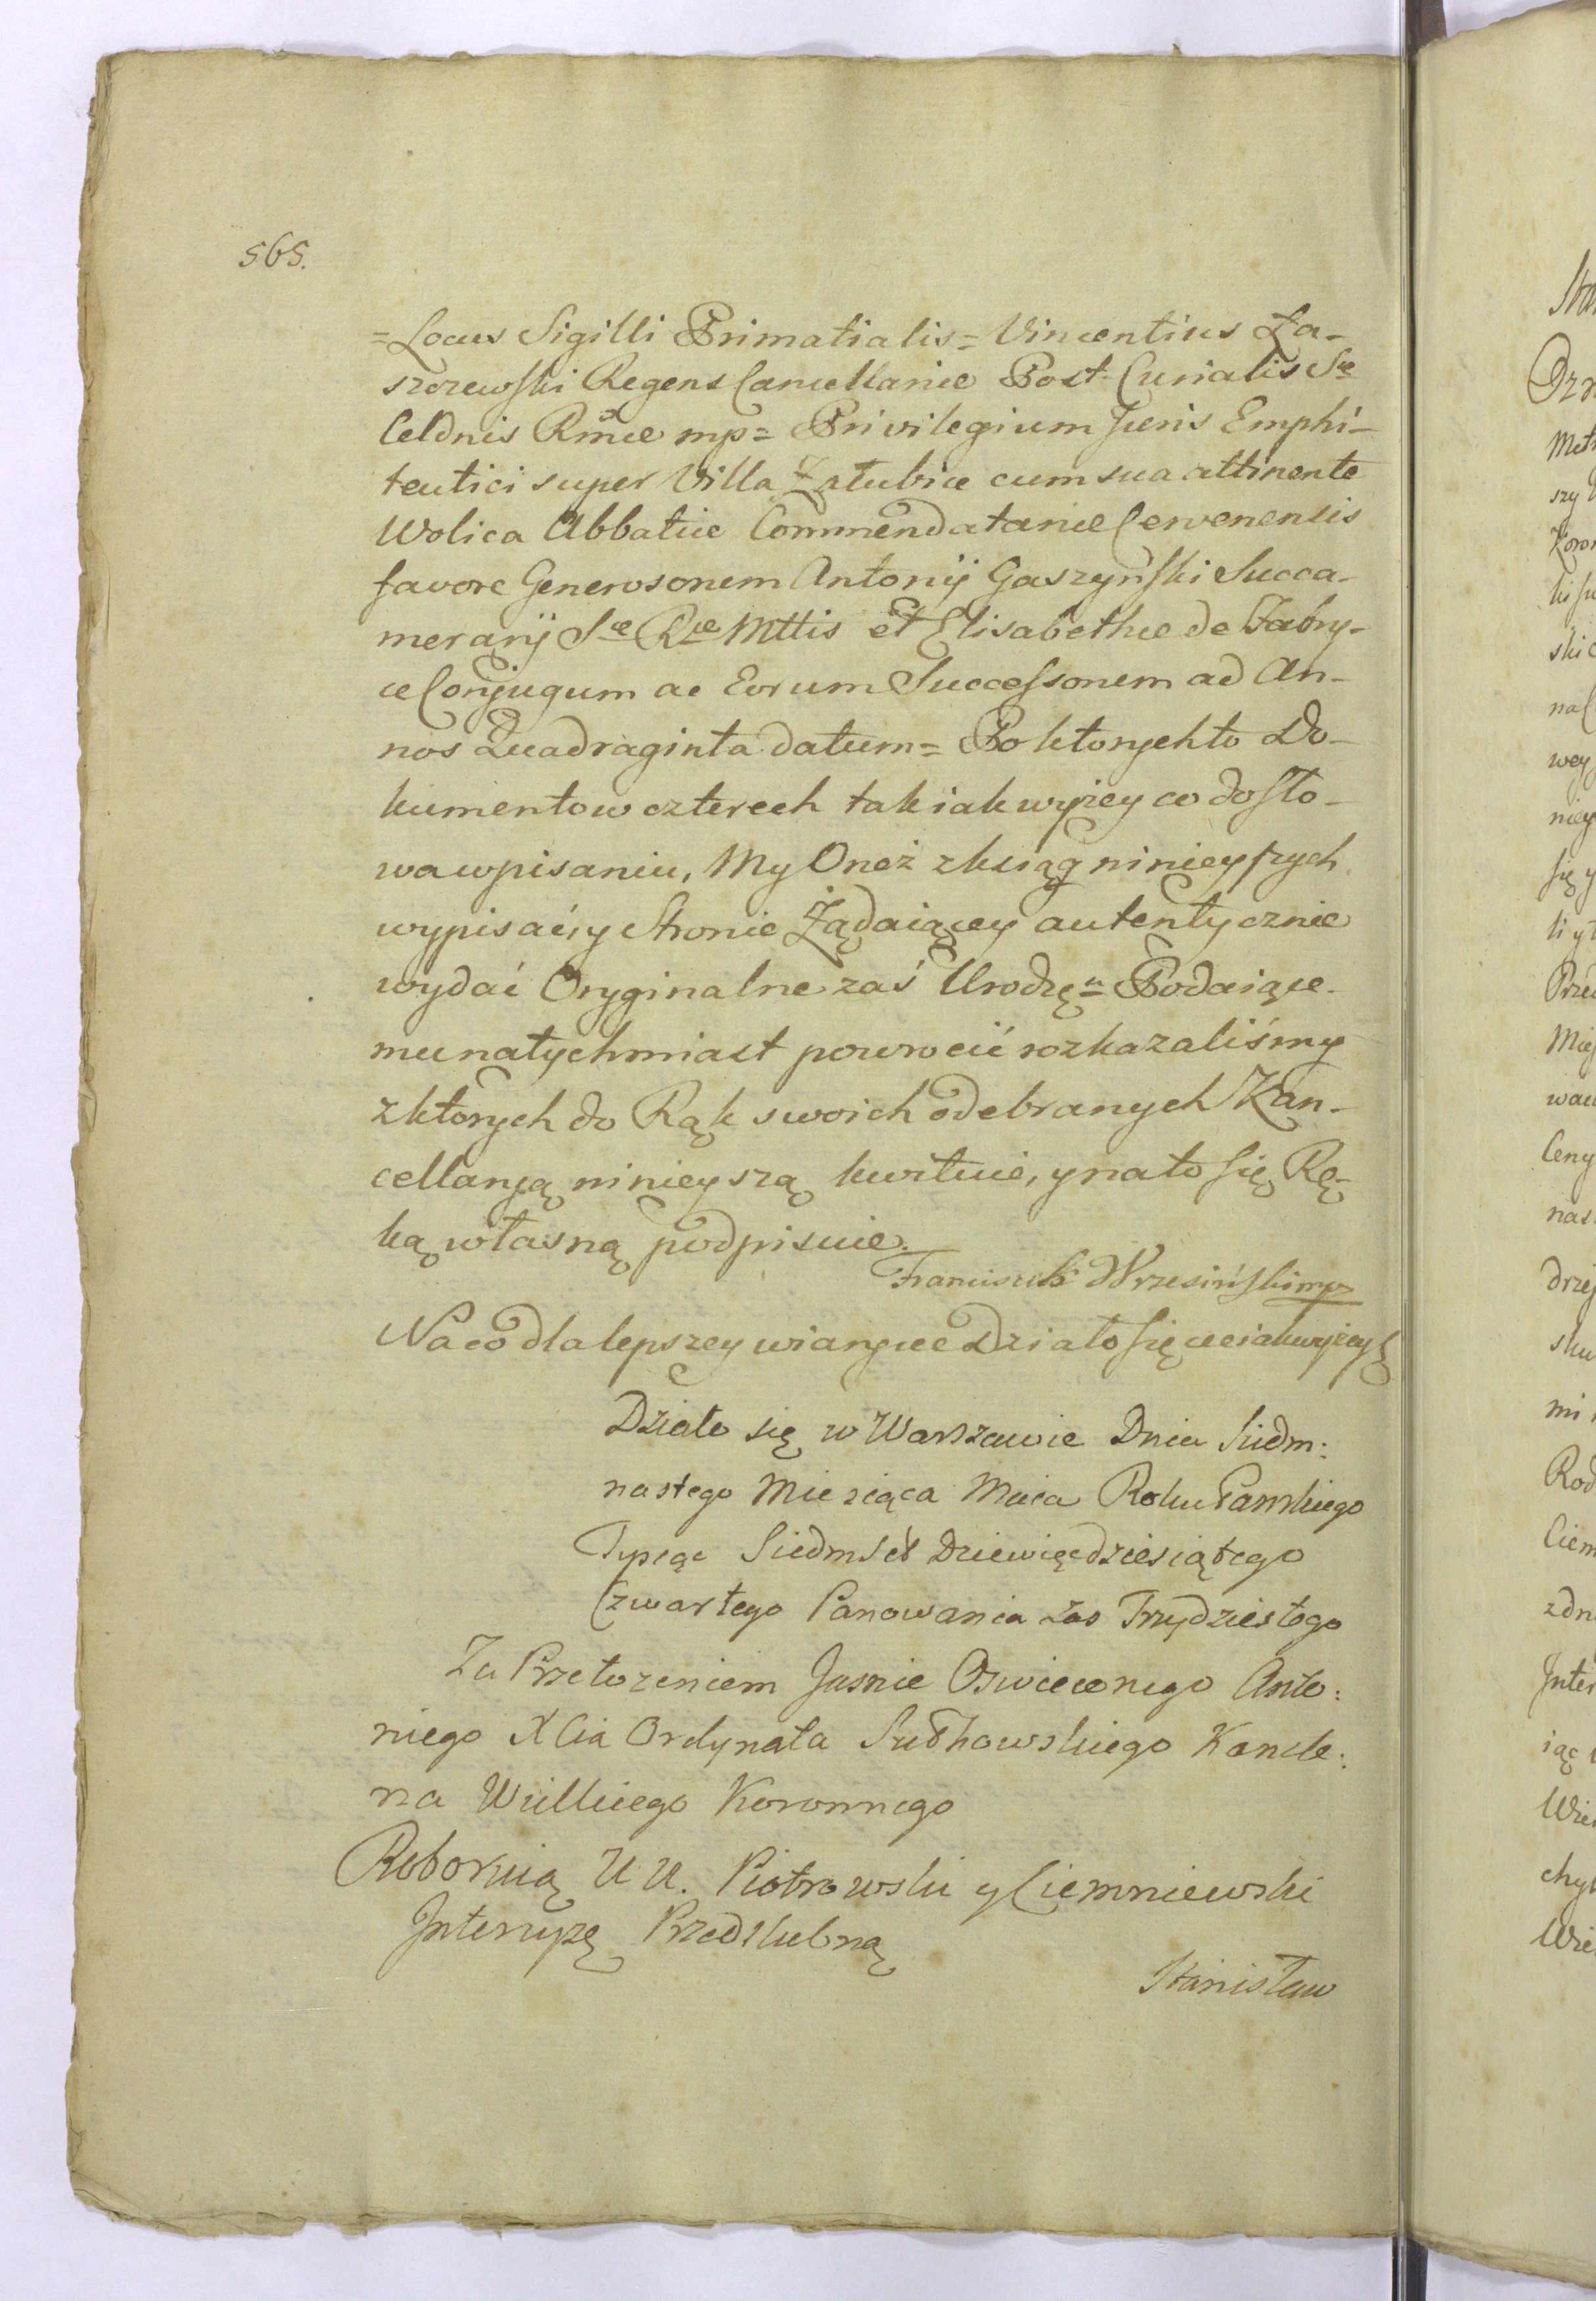 565.
=Locus Sigilli Primatialis= Vincentius Ła-
szczewski Regens Cancellariæ Post-Curialis Sæ
Celdnis Rmæ mp= Privilegium Juris Emphi-
teutici super Villa Załubice cum sua attinente
Wolica Abbatiæ Commendatariæ Cervenensis
favore Generosorum Antonij Gaszyński Succa-
merarij Sæ Ræ Mttis et Elisabethæ de Fabry-
ce Conjugum ac Eorum Successorum ad An-
nos Quadraginta datum= Po ktorych to Do-
kumentow czterech tak iak wyżey co do sło-
wa wpisaniu, My Oneż z ksiąg ninieyszych
wypisać, y Stronie Żądaiącey autentycznie
wydać Oryginalne zaś Urodzo Podaiące-
mu natychmiast powrocić rozkazaliśmy
z ktorych do Rąk swoich odebranych Kan-
cellaryą ninieyszą kwituie, y na to się Rę-
ką własną podpisuie.
Franciszek Wrzesiński mp
Na co dla lepszey wiary &ce Działo się &ce iak wyżey
Działo się w Warszawie Dnia Siedm:
nastego Miesiąca Maia Roku Pańskiego
Tysiąc Siedmset Dziewięćdziesiątego
Czwartego Panowania zas Trzydziestego
Za Przełozeniem Jasnie Oswieconego Anto:
niego XCia Ordynata Sułkowskiego Kancle:
rza Wielkiego Koronnego
Roboruią UU. Piotrowski y Ciemniewski
Intercyzę Przedślubną
Stanisław